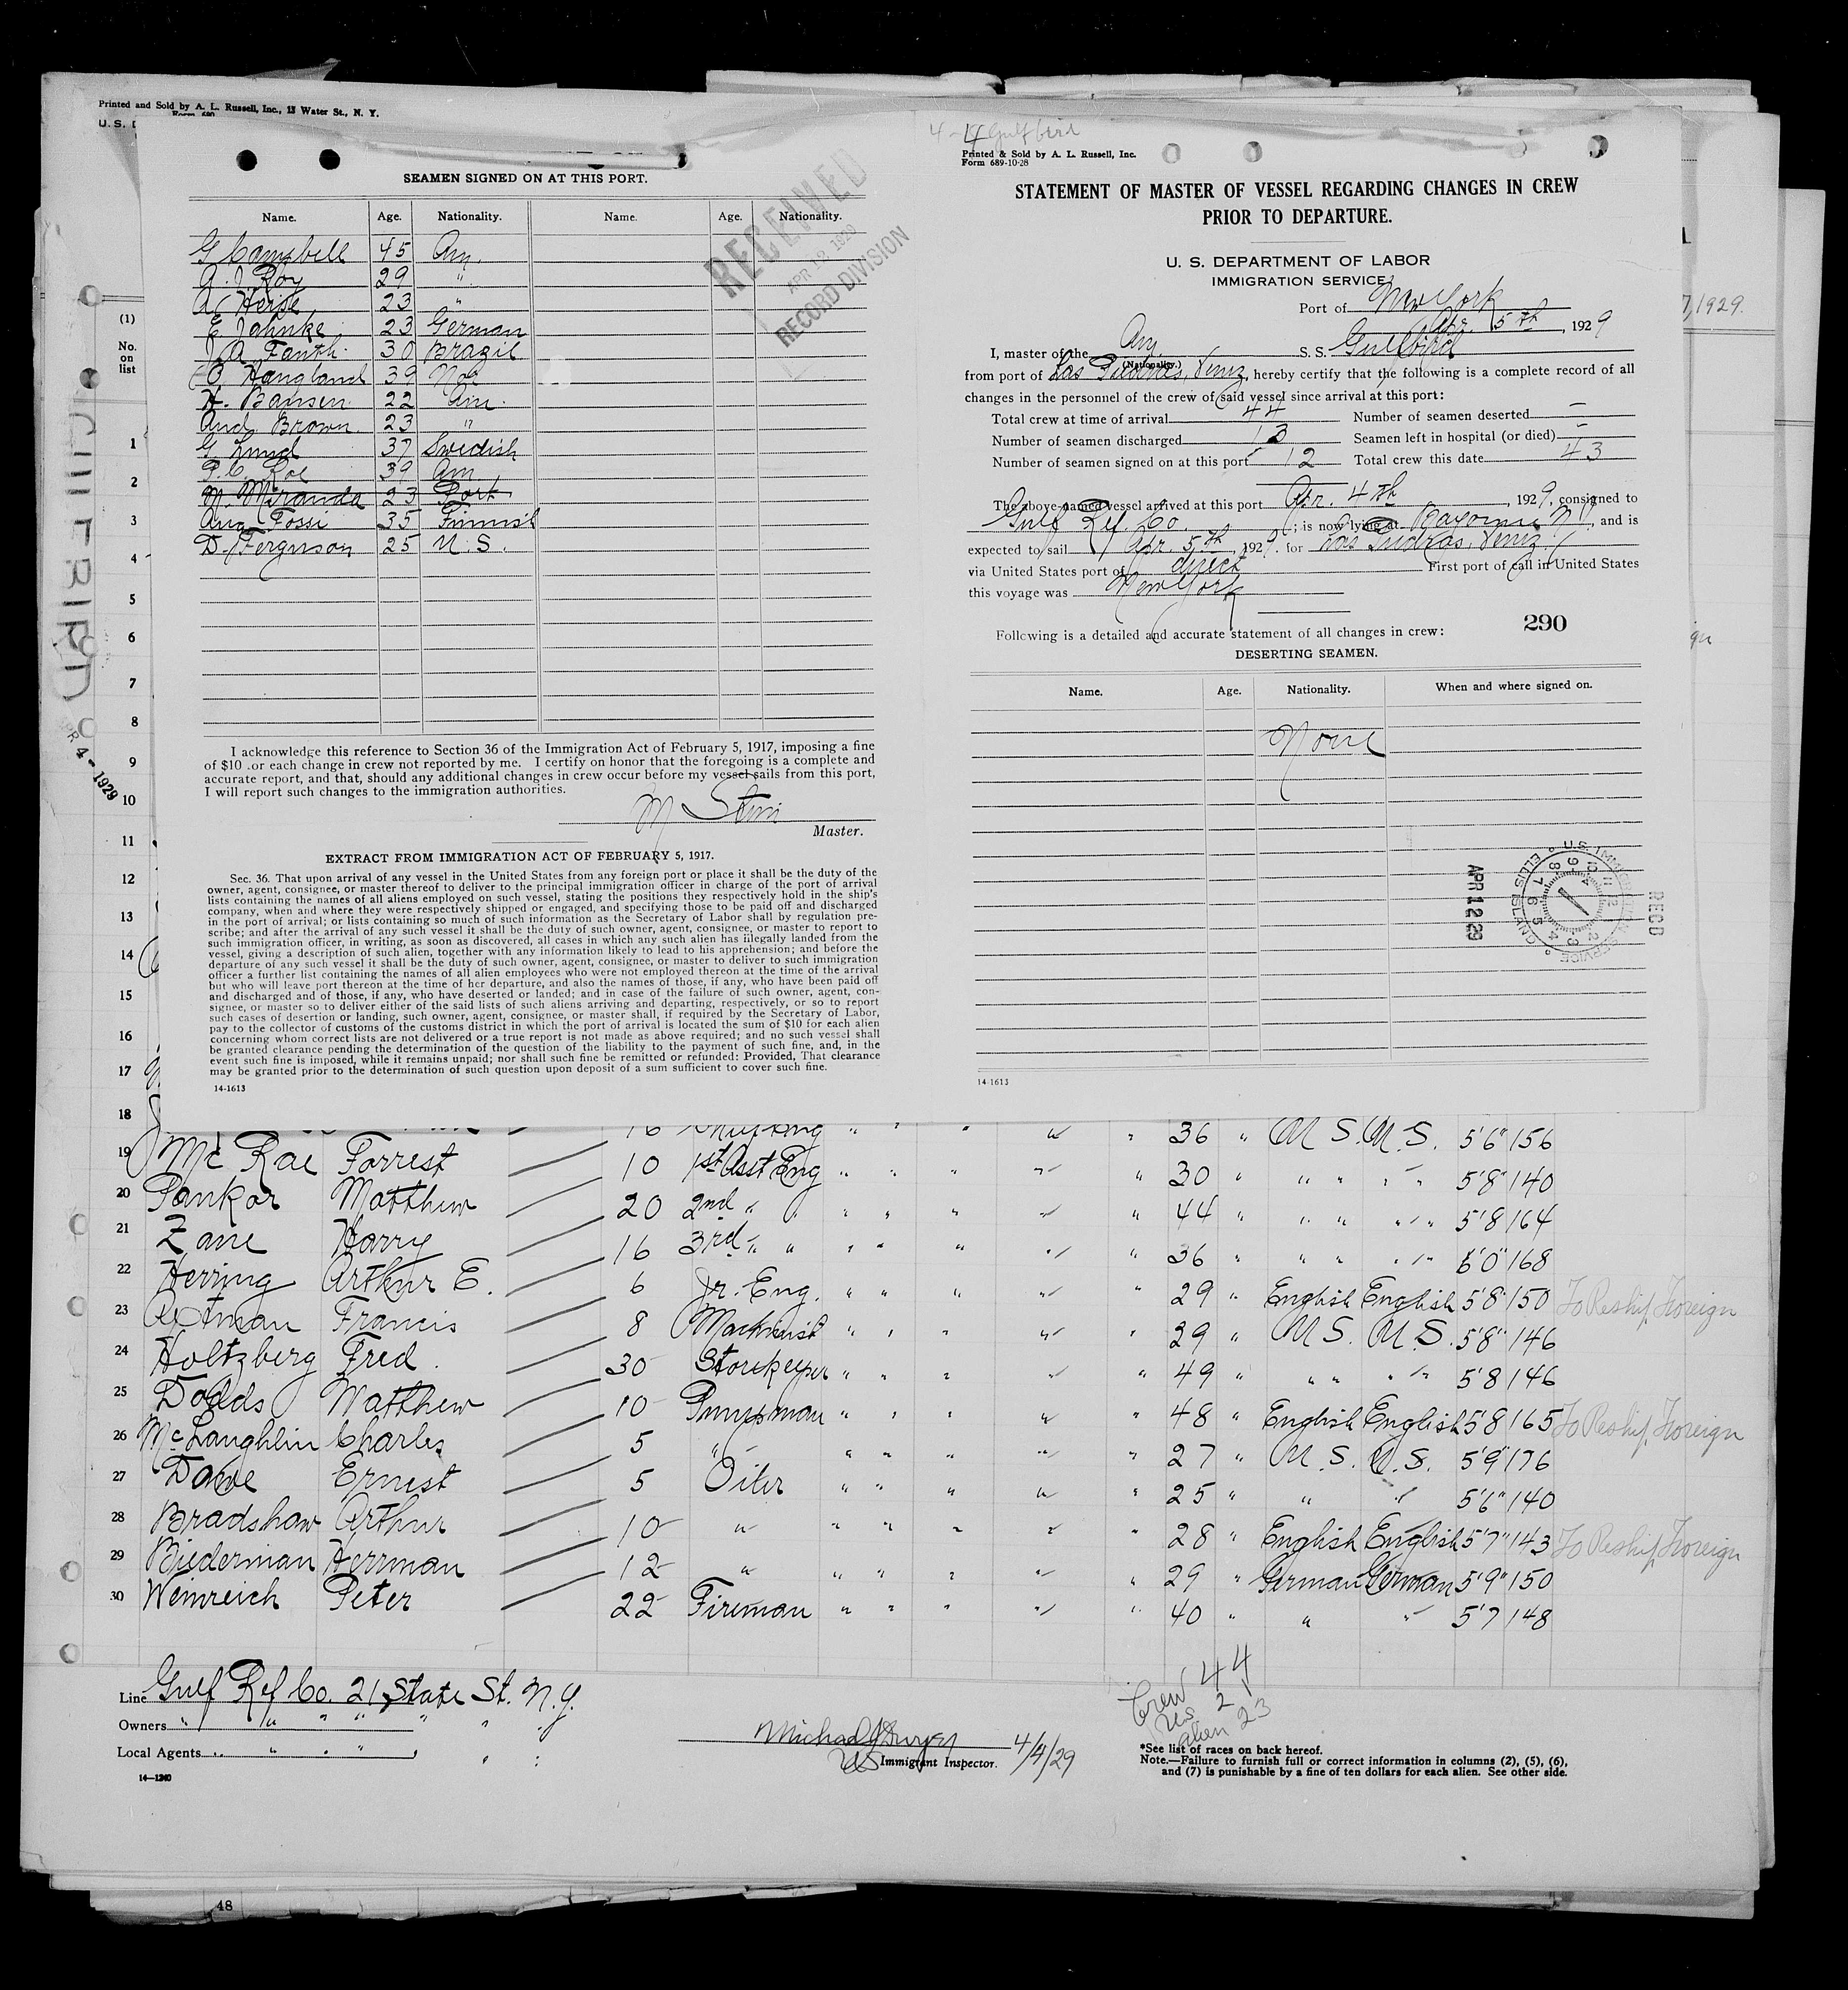 Printed and Sold by A. L. Russell, Inc., 13 Water St., N. Y.
Form 690
U. S.
SEAMEN SIGNED ON AT THIS PORT.
Name. Age. Nationality. Name. Age. Nationality.
G Campbell 45 Am.
A. J. Roy 29 "
A. Heise 23 "
E Jahnke 23 German
J A Fanth 30 Brazil
O. Haugland 39 Nor
H. Bansen 22 Am.
And Brown 23 "
G. Lund 37 Swedish
P. C. Roe 39 Am
M. Miranda 23 Port
Aug Fossi 35 Finnish
D. Ferguson 25 U. S.
RECEIVED
APR 12 1929
RECORD DIVISION
I acknowledge this reference to Section 36 of the Immigration Act of February 5, 1917, imposing a fine
of $10 .or each change in crew not reported by me. I certify on honor that the foregoing is a complete and
accurate report, and that, should any additional changes in crew occur before my vessel sails from this port,
I will report such changes to the immigration authorities.
M
Master.
EXTRACT FROM IMMIGRATION ACT OF FEBRUARY 5, 1917.
Sec. 36. That upon arrival of any vessel in the United States from any foreign port or place it shall be the duty of the
owner, agent, consignee, or master thereof to deliver to the principal immigration officer in charge of the port of arrival
lists containing the names of all aliens employed on such vessel, stating the positions they respectively hold in the ship's
company, when and where they were respectively shipped or engaged, and specifying those to be paid off and discharged
in the port of arrival; or lists containing so much of such information as the Secretary of Labor shall by regulation pre-
scribe; and after the arrival of any such vessel it shall be the duty of such owner, agent, consignee, or master to report to
such immigration officer, in writing, as soon as discovered, all cases in which any such alien has illegally landed from the
vessel, giving a description of such alien, together with any information likely to lead to his apprehension; and before the
departure of any such vessel it shall be the duty of such owner, agent, consignee, or master to deliver to such immigration
officer a further list containing the names of all alien employees who were not employed thereon at the time of the arrival
but who will leave port thereon at the time of her departure, and also the names of those, if any, who have been paid off
and discharged and of those, if any, who have deserted or landed; and in case of the failure of such owner, agent, con-
signee, or master so to deliver either of the said lists of such aliens arriving and departing, respectively, or so to report
such cases of desertion or landing, such owner, agent, consignee, or master shall, if required by the Secretary of Labor,
pay to the collector of customs of the customs district in which the port of arrival is located the sum of $10 for each alien
concerning whom correct lists are not delivered or a true report is not made as above required; and no such vessel shall
be granted clearance pending the determination of the question of the liability to the payment of such fine, and, in the
event such fine is imposed, while it remains unpaid; nor shall such fine be remitted or refunded: Provided, That clearance
may be granted prior to the determination of such question upon deposit of a sum sufficient to cover such fine.
14-1613
4-4 Gulfbird
Printed & Sold by A. L. Russell, Inc.
Form 689-10-28
STATEMENT OF MASTER OF VESSEL REGARDING CHANGES IN CREW
PRIOR TO DEPARTURE.
U. S. DEPARTMENT OF LABOR
IMMIGRATION SERVICE
Port of New York
Apr. 5th, 1929
I, master of the Am. S. S. Gulfbird
(Nationality.)
from port of Las Piedras, Venez, hereby certify that the following is a complete record of all
changes in the personnel of the crew of said vessel since arrival at this port:
Total crew at time of arrival 44 Number of seamen deserted —
Number of seamen discharged 13 Seamen left in hospital (or died) —
Number of seamen signed on at this port 12 Total crew this date 43
The above-named vessel arrived at this port Apr. 4th, 1929, consigned to
Gulf Ref. Co.; is now lying at Bayonne N J, and is
expected to sail Apr. 5th, 1929. for Las Piedras, Venez.
via United States port of direct First port of call in United States
this voyage was New York
290
Following is a detailed and accurate statement of all changes in crew:
DESERTING SEAMEN.
Name. Age. Nationality. When and where signed on.
None
APR 12 29
U. S. IMMIGRATION SERVICE
ELLIS ISLAND
REC'D
14-1613
7, 1929.
GULFBIRD
APR 4 - 1929
(1)
No.
on
list
1
2
3
4
5
6
7
8
9
10
11
12
13
14
15
16
17
18 16 Chief Eng " " " " " 36 " U. S. U. S. 5'6" 156
19 McRae Forrest 10 1st Asst Eng " " " " " 30 " " " " " 5'8" 140
20 Pankar Matthew 20 2nd " " " " " " " 44 " " " " " 5'8 164
21 Zane Harry 16 3rd " " " " " " " 36 " " " " " 6'0" 168
22 Herring Arthur E. 6 Jr. Eng. " " " " " 29 " English English 5'8" 150 To Reship Foreign
23 Francis 8 Machinist " " " " " 29 " U S. U S. 5'8" 146
24 Holtzberg Fred. 30 Storekeeper " " " " " 49 " " " " " 5'8 146
25 Dodds Matthew 10 Pumpman " " " " " 48 " English English 5'8 165 To Reship Foreign
26 McLaughlin Charles 5 " " " " " " 27 " U. S. U. S. 5'9" 176
27 Dawe Ernest 5 Oiler " " " " " 25 " " " 5'6" 140
28 Bradshaw Arthur 10 " " " " " " 28 " English English 5'7" 143 To Reship Foreign
29 Biederman Herrman 12 " " " " " " 29 " German German 5'9" 150
30 Weinreich Peter 22 Fireman " " " " " 40 " " " 5'7 148
Line Gulf Ref Co. 21 State St. N. Y.
Owners " " " " " " "
Local Agents " " " " " " "
14—1240
Crew 44
US 21
alien 23
Michael J Dwyer
US Immigrant Inspector. 4/4/29
*See list of races on back hereof.
Note.—Failure to furnish full or correct information in columns (2), (5), (6),
and (7) is punishable by a fine of ten dollars for each alien. See other side.
48